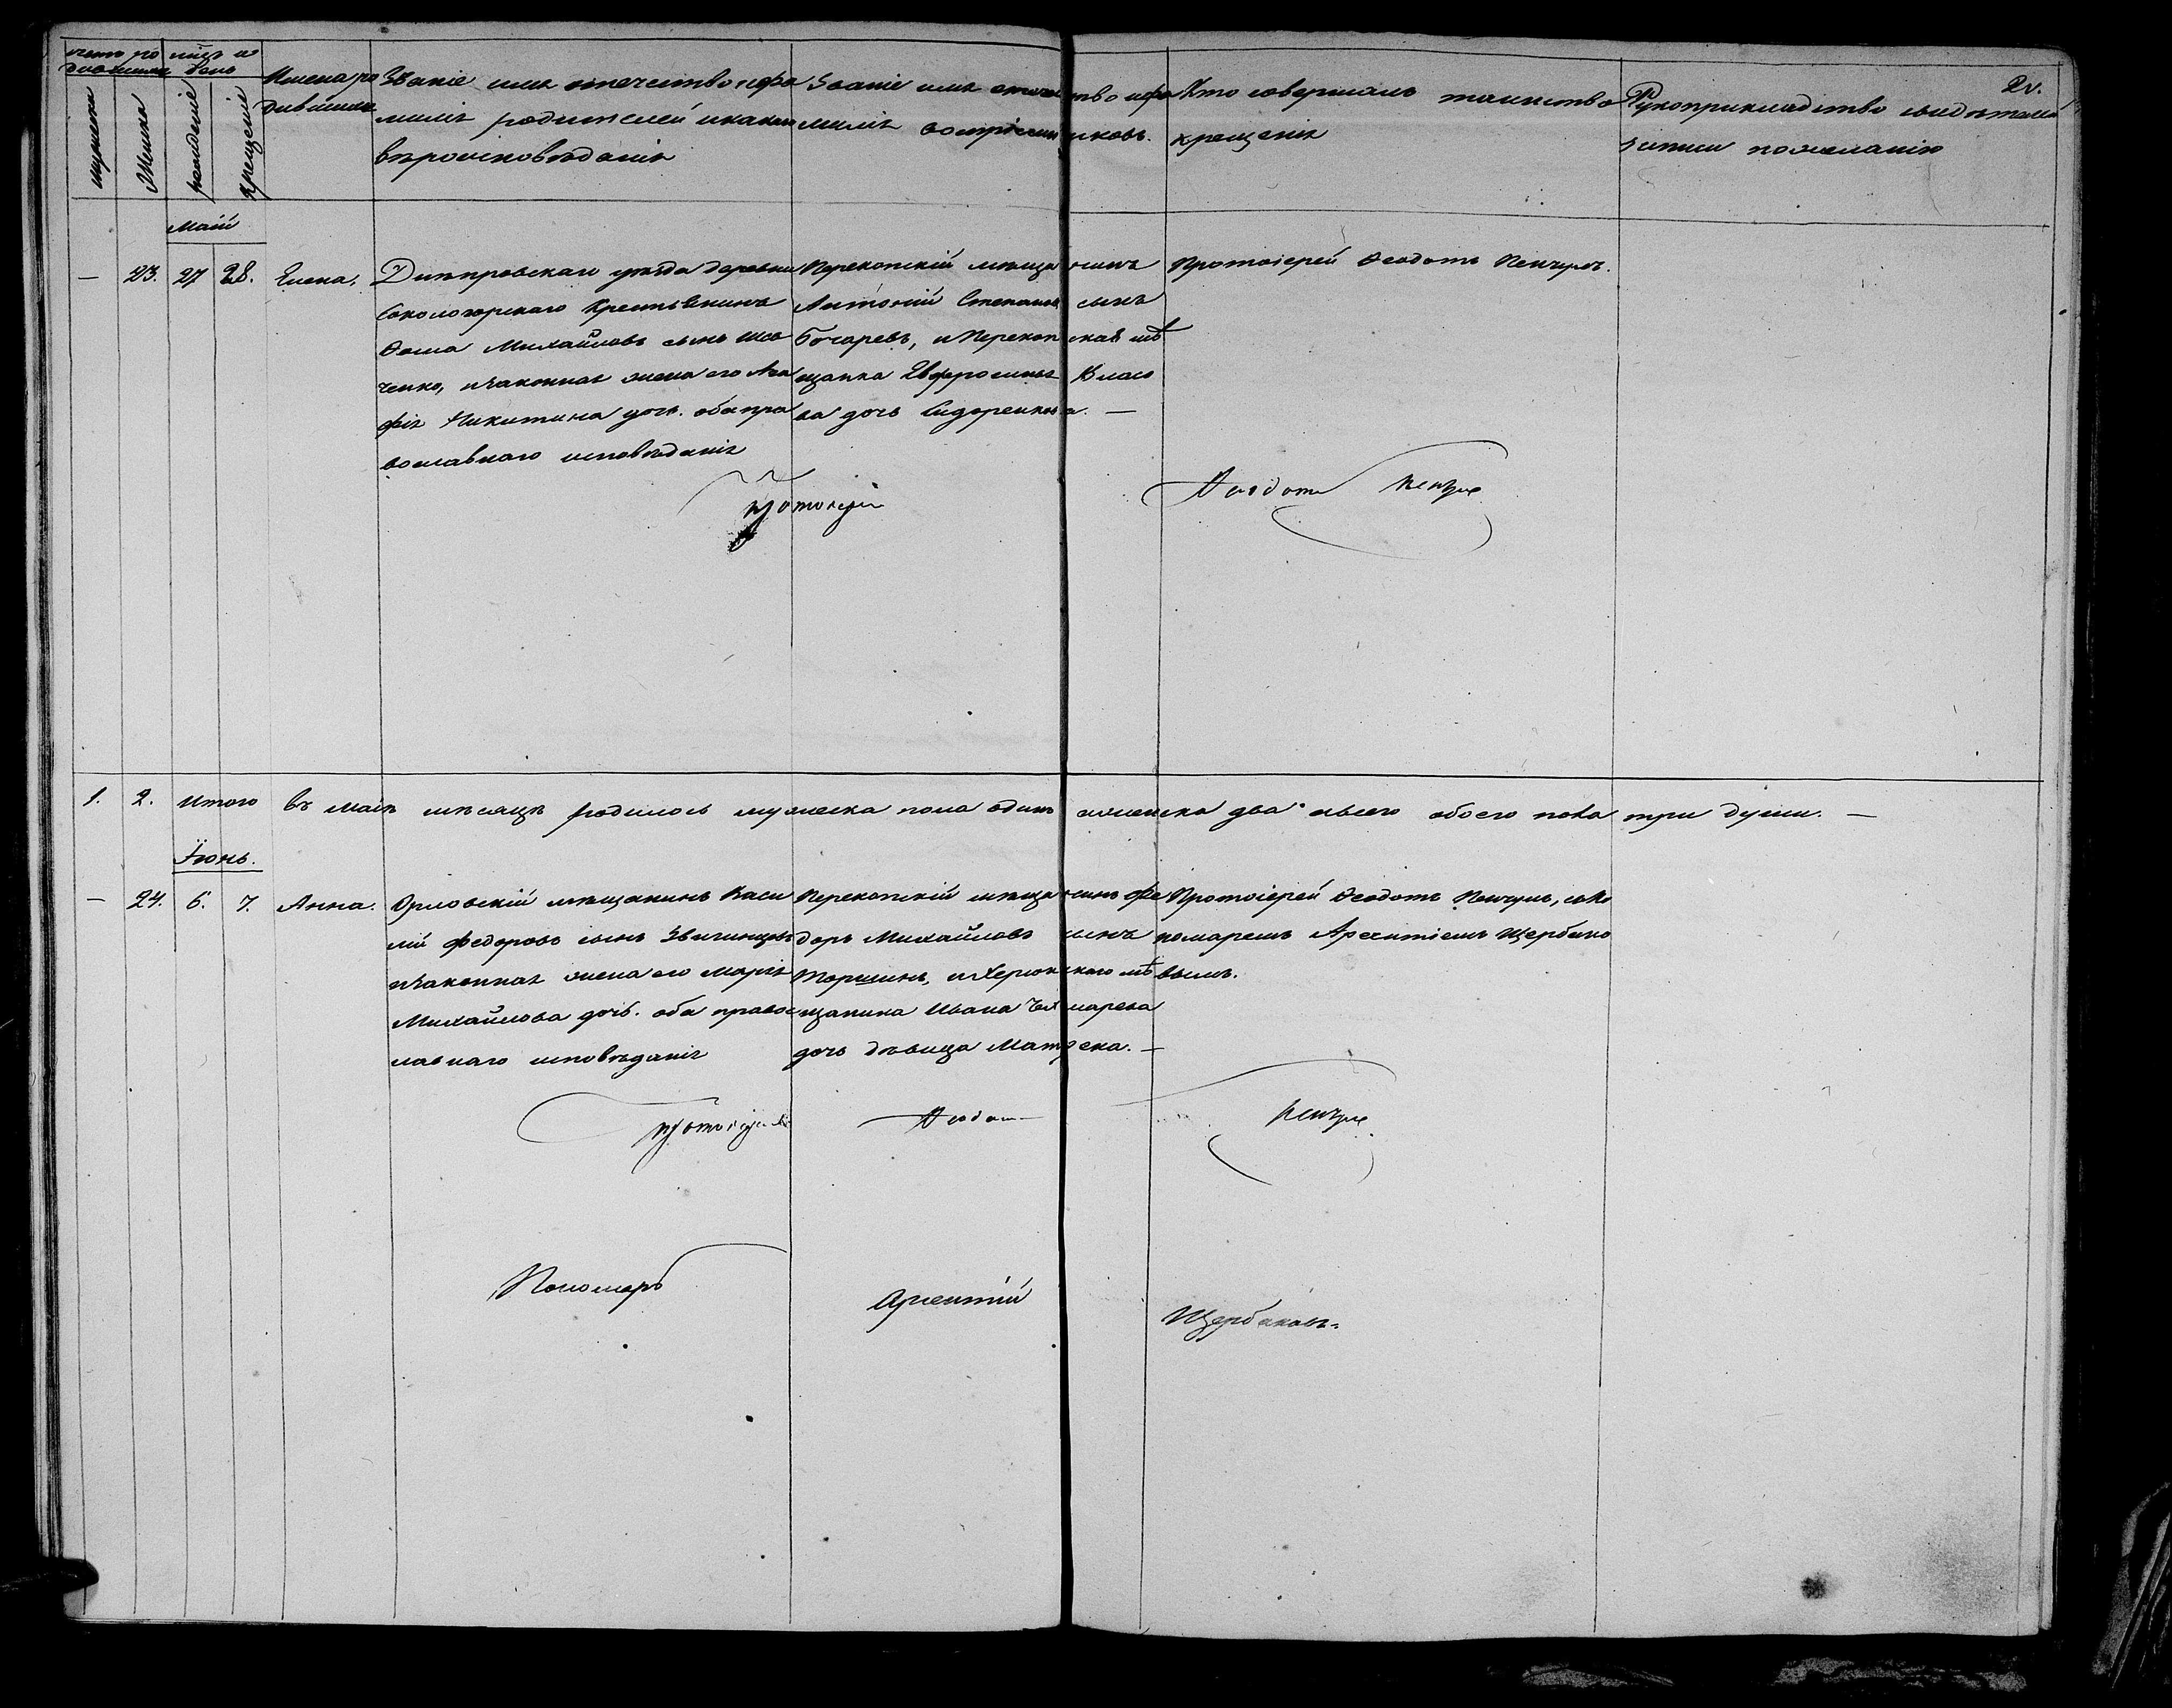 счетъ ро
дившихся
мѣсяцъ и
день
мужеска
Женска
рожденіе
крещеніе
Имена ро
дившихся
Званіе имя отечество и фа
милія родителей и какого
вѣроисповѣданія
Званіе имя отечество и фа
милія воспріемниковъ.
Кто совершалъ таинство
крещенія
Рукоприкладство свидѣтелей
записи по желанію
Май
— 23. 27 28. Елена.
Днѣпровскаго уѣзда деревни
Сокологорнаго Крестьянинъ
Ѳома Михайловъ сынъ
ченко, и законная жена его Ага
фія Никитина дочь. оба пра
вославнаго исповѣданія
Перекопскій мѣщанинъ
Антоній Степановъ сынъ
Бочаревъ, и Перекопская мѣ
щанка Евфросинья Власо
ва дочь Сидоренкова. —
Протоіерей Ѳеодотъ Пенчулъ.
Протоіерей Ѳеодотъ Пенчулъ
1. 2. Итого въ маѣ мѣсяцѣ родилось мужеска пола одинъ и женска два а всего обоего пола три души. —
Іюнь.
— 24. 6. 7. Анна.
Орловскій мѣщанинъ Васи
лій Федоровъ сынъ Звягинцовъ
и законная жена его Марія
Михайлова дочь. оба правос
лавнаго исповѣданія
Перекопскій мѣщанинъ Фе
доръ Михайловъ сынъ
Торшинъ, и Херсонскаго мѣ
щанина Ивана Чехмарева
дочь дѣвица Матрена. —
Протоіерей Ѳеодотъ Пенчулъ, съ По
номаремъ Арсентіемъ Щербако
вымъ.
Протоіерей Ѳеодотъ Пенчулъ
Пономарь Арсентій Щербаковъ.